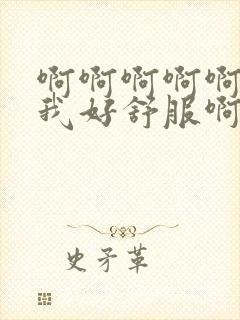 啊啊啊啊啊
我好舒服啊
史矛革